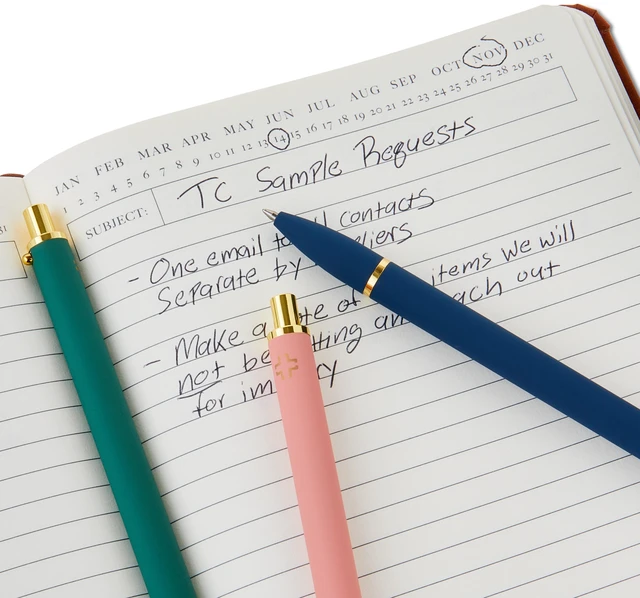 JAN FEB MAR APR MAY JUN JUL AUG SEP OCT NOV DEC
1 2 3 4 5 6 7 8 9 10 11 12 13 14 15 16 17 18 19 20 21 22 23 24 25 26 27 28 29 30 31
SUBJECT: TC Sample Requests
31
- One email contacts
Separate by
- Make a of items we will
not out
for